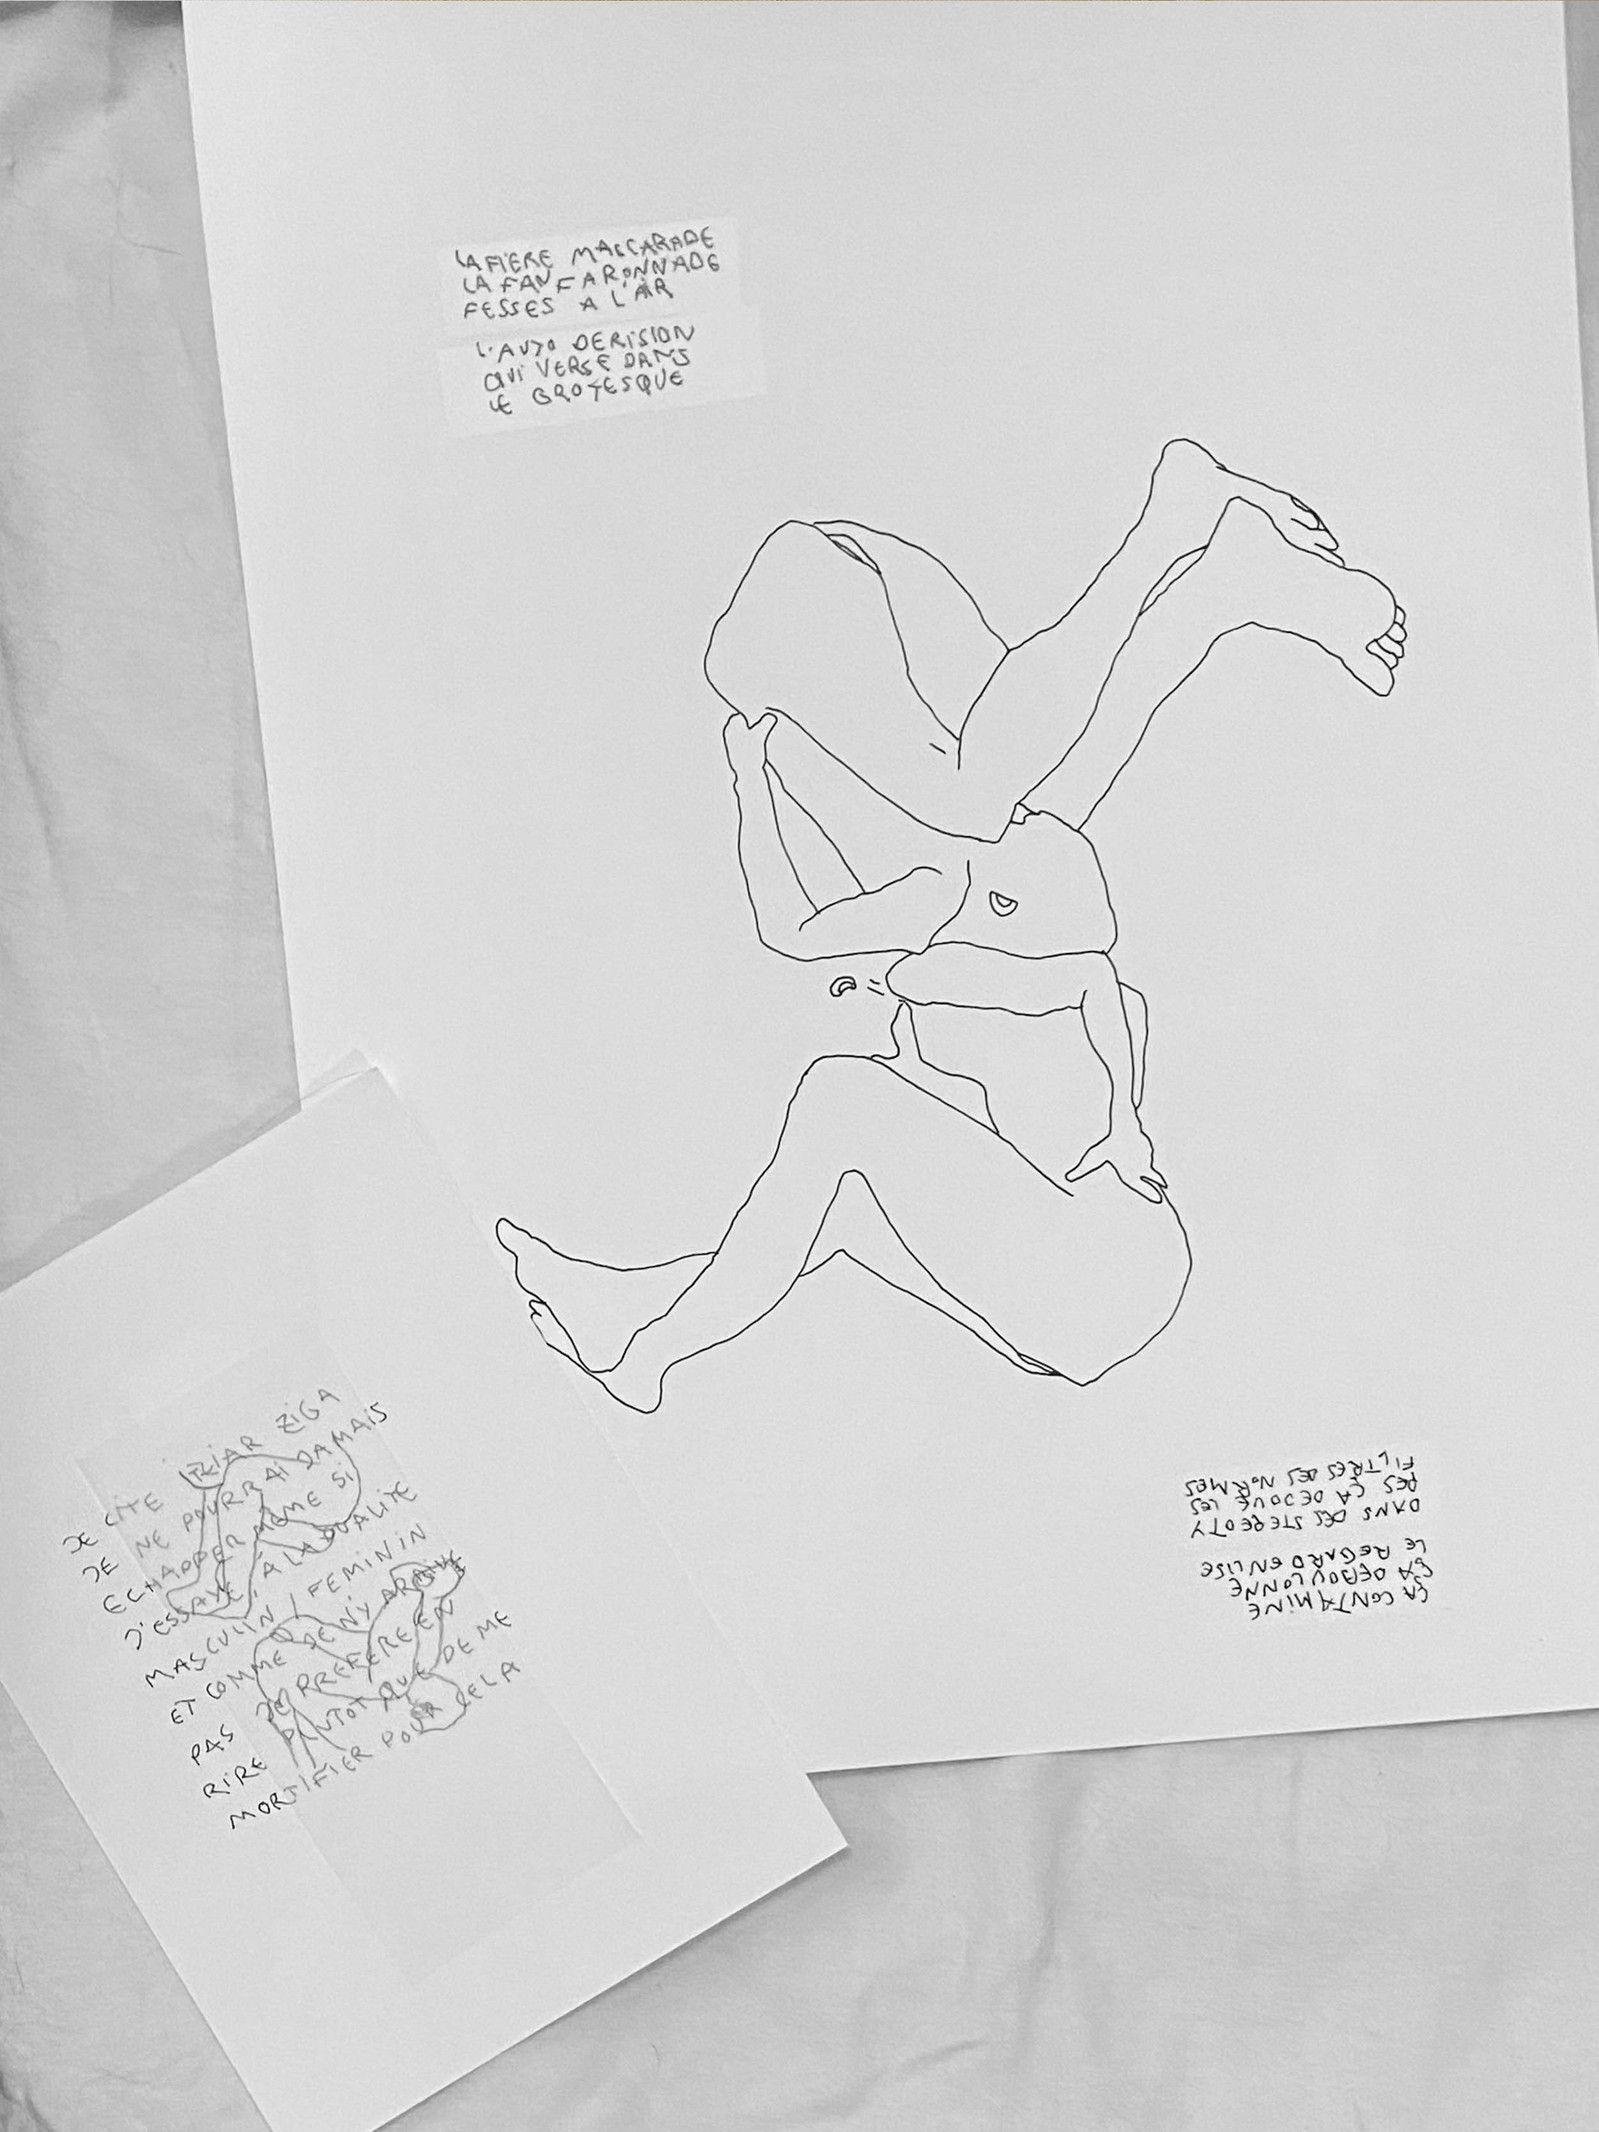 LA FIERE MASCARADE
LA FANFARONNADE
FESSES A L'AIR
L'AUTO DERISION
QUI VERSE DANS
LE GROTESQUE
ÇA CONTAMINE
ÇA DEBOULONNE
LE REGARD ENLISE
DANS DES STEREOTY
PES ÇA DEJOUE LES
FILTRES DES NORMES
JE CITE ZIGA
JE NE POURRAI JAMAIS
ECHAPPER MEME SI
J'ESSAYE, A LA DUALITE
MASCULIN / FEMININ
ET COMME JE N'Y ARRIVE
PAS JE PREFERE EN
RIRE PLUTOT QUE DE ME
MORTIFIER POUR CELA